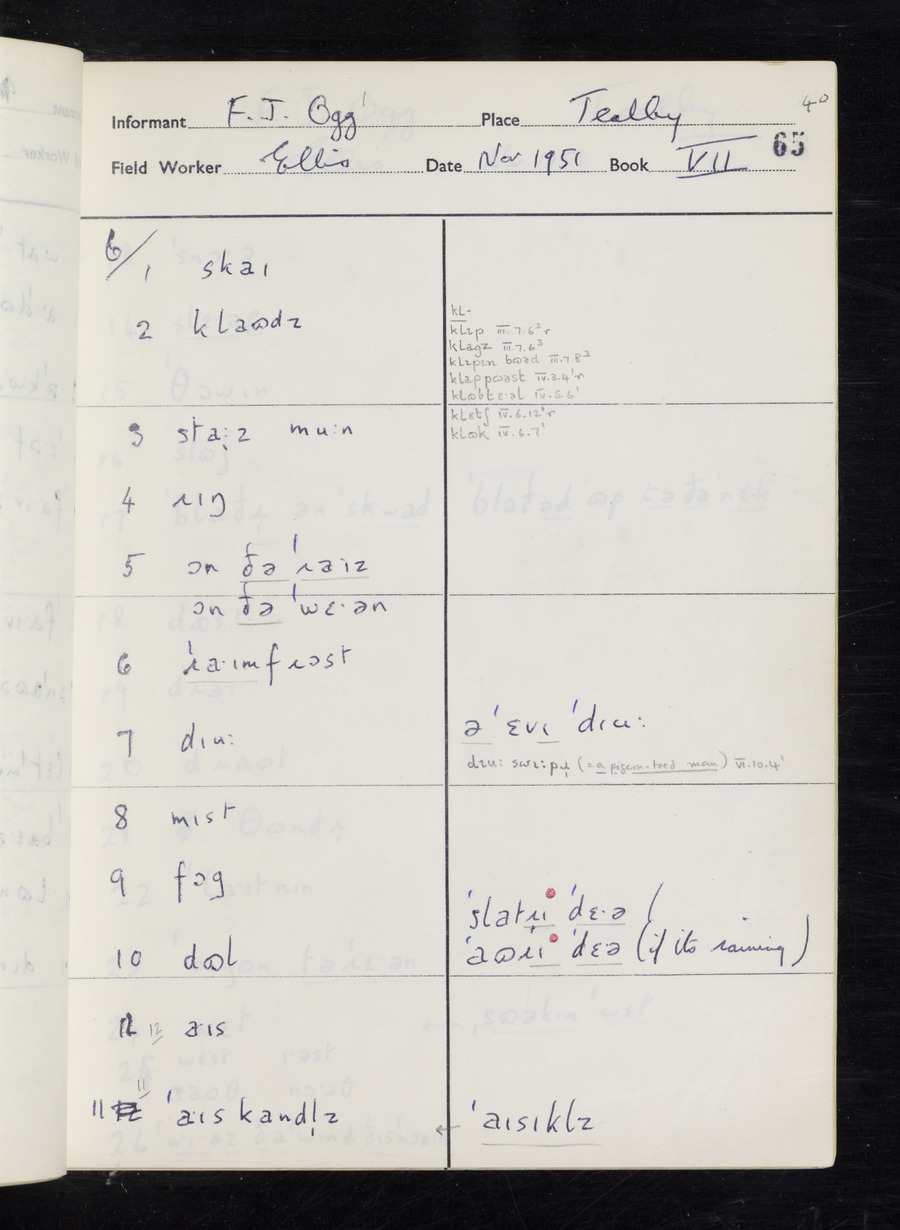 40
Informant F. J. Ogg Place Tealby
65
Field Worker Ellis Date Nov 1951 Book VII
6/1 skaɪ
2 klaʊdz
kL-
klɪp III.7.6³r
klagz III.7.6³
klɪpɪn bɔəd III.7.8³
klap pʊəst IV.3.4'r
3 staːz muːn
klɛtʃ IV.6.12'r
klɒk IV.6.7'
4 ɹɪŋ
5 ɔn ðə ˈɹaɪz
ɔn ðə ˈwɛ·ən
6 ˈɹa·ɪmfɹɔst
7 dɪuː
ə ˈɛvɪ ˈdɪuː
dɪuː swiːpɹ̩ (= a pigeon-toed man) VI.10.4'
8 mɪst
9 fɔg
ˈslatɹɪ ˈdɛ·ə (
10 dʊl
ˈaʊɹɪ ˈdɛə (if its raining)
12 aɪs
11 ˈaɪs kandl̩z
← ˈaɪsɪklz